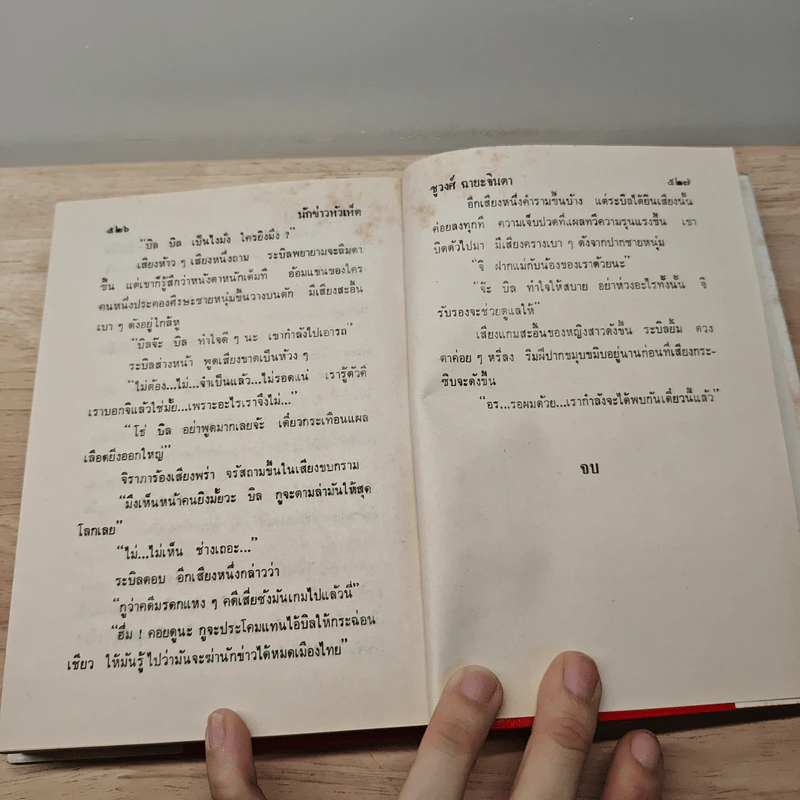 ๕๒๖
นักข่าวหัวเห็ด
“บิล บิล เป็นไงมั่ง ใครยิงมึง ?”
เสียงห้าว ๆ เสียงหนึ่งถาม ระบิลพยายามจะลืมตา
ขึ้น แต่เขาก็รู้สึกว่าหนังตาหนักเต็มที อ้อมแขนของใคร
คนหนึ่งประคองศีรษะชายหนุ่มขึ้นวางบนตัก มีเสียงสะอื้น
เบา ๆ ดังอยู่ใกล้หู
“บิลจ๊ะ บิล ทำใจดี ๆ นะ เขากำลังไปเอารถ”
ระบิลส่างหน้า พูดเสียงขาดเป็นห้วง ๆ
“ไม่ต้อง...ไม่...จำเป็นแล้ว...ไม่รอดแน่ เรารู้ตัวดี
เราบอกจิแล้วใช่มั้ย...เพราะอะไรเราจึงไม่...”
“โธ่ บิล อย่าพูดมากเลยจ๊ะ เดี๋ยวกระเทือนแผล
เลือดยิ่งออกใหญ่”
จิราภาร้องเสียงพร่า จรัสถามขึ้นในเสียงขบกราม
“มึงเห็นหน้าคนยิงมั้ยวะ บิล กูจะตามล่ามันให้สุด
โลกเลย”
“ไม่...ไม่เห็น ช่างเถอะ...”
ระบิลตอบ อีกเสียงหนึ่งกล่าวว่า
“กูว่าคดีมรดกแหง ๆ คดีเสี่ยซังมันเกมไปแล้วนี่”
“ฮึ่ม ! คอยดูนะ กูจะประโคมแทนไอ้บิลให้กระฉ่อน
เชียว ให้มันรู้ไปว่ามันจะฆ่านักข่าวได้หมดเมืองไทย”
ชูวงศ์ ฉายะจินดา
๕๒๗
อีกเสียงหนึ่งคำรามขึ้นบ้าง แต่ระบิลได้ยินเสียงนั้น
ค่อยลงทุกที ความเจ็บปวดที่แผลทวีความรุนแรงขึ้น เขา
บิดตัวไปมา มีเสียงครางเบา ๆ ดังจากปากชายหนุ่ม
“จิ ฝากแม่กับน้องของเราด้วยนะ”
“จ๊ะ บิล ทำใจให้สบาย อย่าห่วงอะไรทั้งนั้น จิ
รับรองจะช่วยดูแลให้”
เสียงแกมสะอื้นของหญิงสาวดังขึ้น ระบิลยิ้ม ดวง
ตาค่อย ๆ หรี่ลง ริมฝีปากขมุบขมิบอยู่นานก่อนที่เสียงกระ-
ซิบจะดังขึ้น
“อร...รอผมด้วย...เรากำลังจะได้พบกันเดี๋ยวนี้แล้ว”
จบ